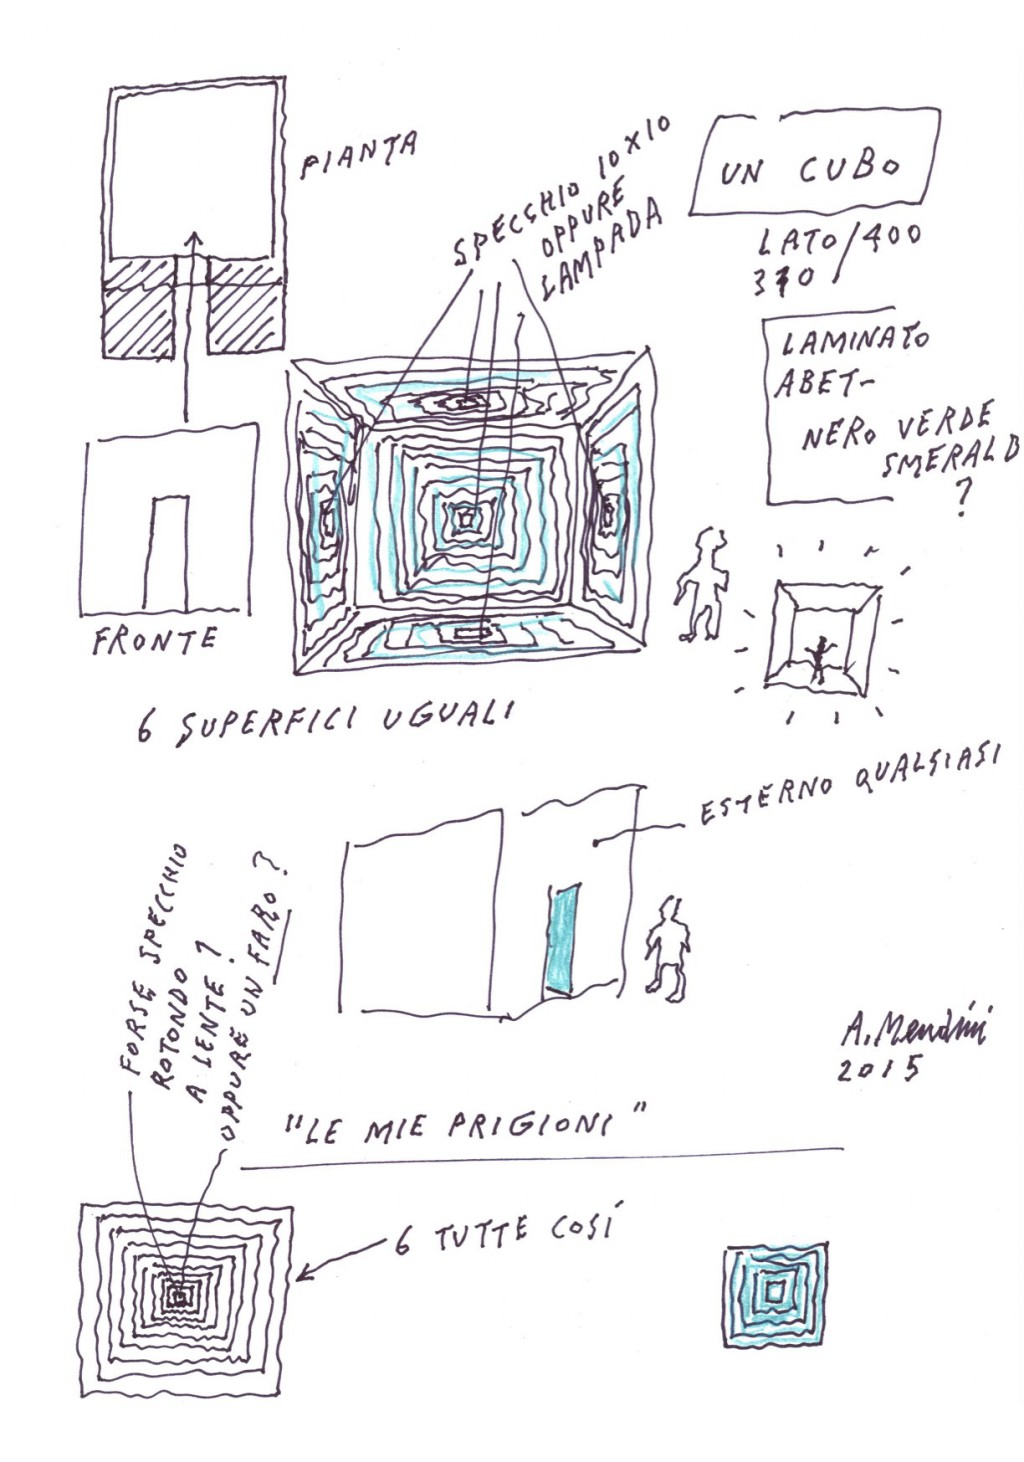 PIANTA
SPECCHIO 10×10
OPPURE
LAMPADA
UN CUBO
LATO/400
370
LAMINATO
ABET-
NERO VERDE
SMERALD
?
FRONTE
6 SUPERFICI UGUALI
ESTERNO QUALSIASI
FORSE SPECCHIO
ROTONDO
A LENTE?
OPPURE UN FARO?
A. Mendini
2015
"LE MIE PRIGIONI"
6 TUTTE COSÍ